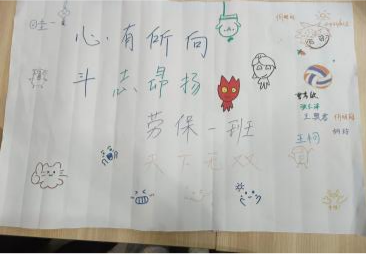 哇
心有所向
斗志昂扬
劳保一班
天下无双
王思君
王柯